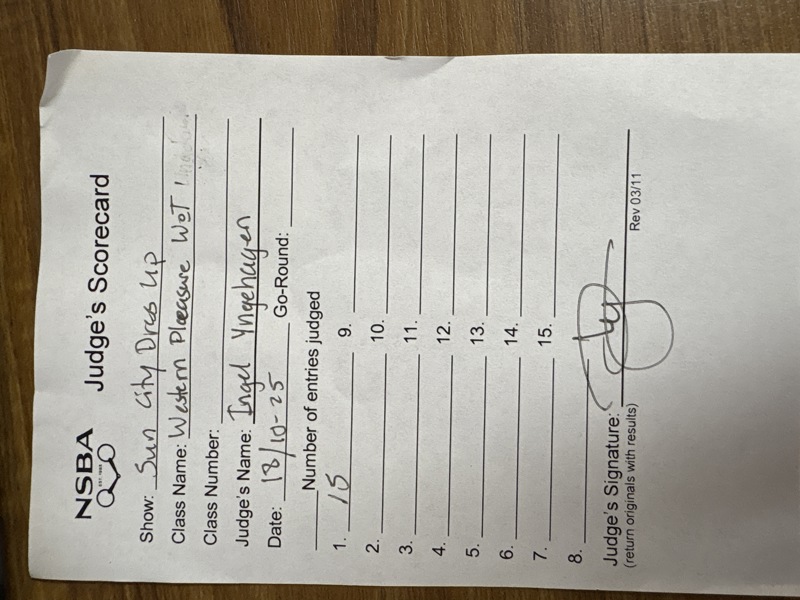 NSBA
Judge's Scorecard
Show: Sun City Dress Up
Class Name: Western Pleasure WoT
Class Number:
Judge's Name: Ingel Yngehagen
Date: 18/10-25 Go-Round:
Number of entries judged
1. 15 9.
2. 10.
3. 11.
4. 12.
5. 13.
6. 14.
7. 15.
8.
Judge's Signature:
(return originals with results) Rev 03/11